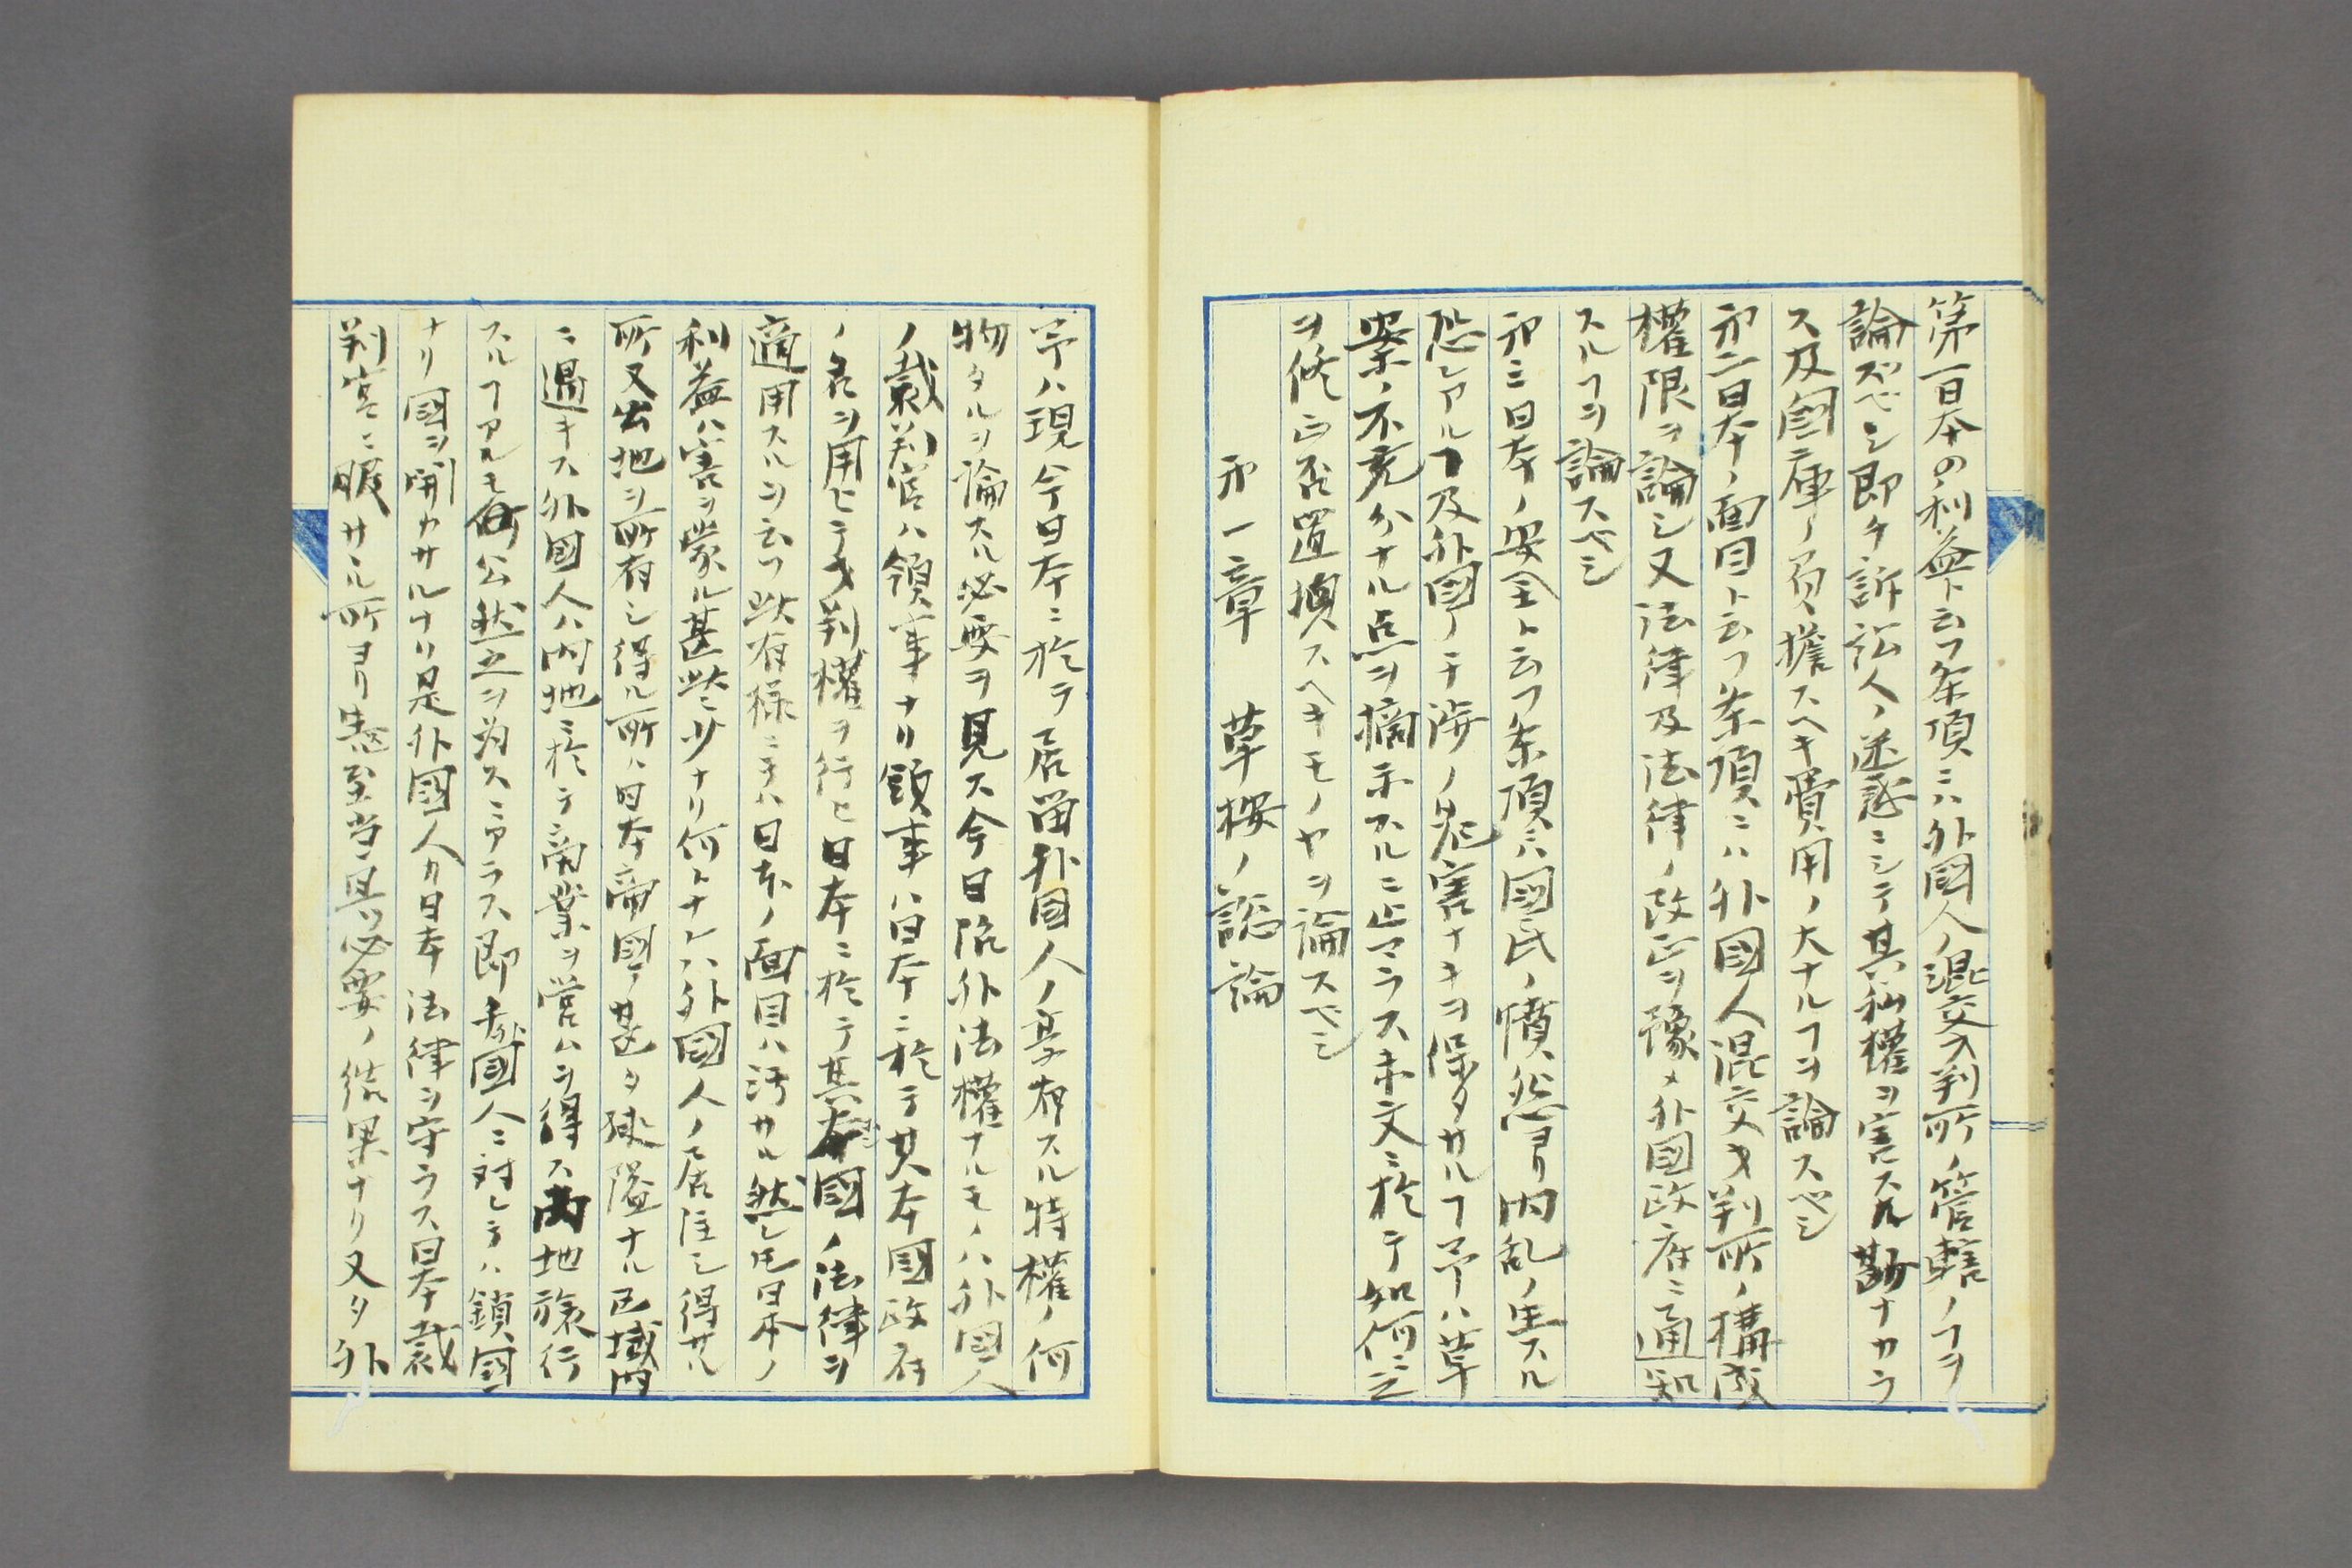 第一日本の利益ト云フ条項ニハ外國人ノ混交才判所ノ管轄ノヿヲ
論ズベシ即チ訴訟人ノ迷惑ニシテ其私權ヲ害スル尠ナカラ
ス及國庫ノ負擔スヘキ費用ノ大ナルヿヲ論スベシ
㐧二日本ノ面目ト云フ条項ニハ外國人混交才判所ノ構成
權限ヲ論シ又法律及法律ノ改正ヲ豫メ外国政府ニ通知
スルヿヲ論スベシ
㐧三日本ノ安全ト云フ条項ニハ國民ノ憤怨ヨリ内乱ノ生スル
恐レアルヿ及外國ノ干渉ノ危害ナキヲ保タサルヿ予ハ草
案ノ不充分ナル点ヲ摘示スルニ止マラス本文ニ於テ如何ニ之
ヲ修正若置換スヘキモノヤヲ論スベシ
㐧一章　草按ノ認論
予ハ現今日本ニ於テ居留外国人ノ享有スル特權ノ何
物タルヲ論スル必要ヲ見ス今日院外法權ナルモノハ外国人
ノ裁判官ハ領事ナリ領事ハ日本ニ於テ其本國政府
ノ名ヲ用ヒテ才判權ヲ行ヒ日本ニ於テ其本國ノ法律ヲ
適用スルヲ云フ此有様ニテハ日本ノ面目ハ汚サル然レ圧日本ノ
利益ハ害ヲ蒙ル甚些少ナリ何トナレハ外國人ノ居住シ得ル
所又土地ヲ所有シ得ル所ハ日本帝國ノ甚タ狹隘ナル区域内
ニ過キス外國人ハ内地ニ於テ商業ヲ営ムヲ得ス内地旅行
スルヿアルモ公然之ヲ為スニアラス即チ國人ニ対シテハ鎖国
ナリ國ヲ開カサルナリ是外國人カ日本法律ヲ守ラス日本裁
判官ニ服サル所ヨリ生至当且ツ必要ノ結果ナリ又タ外